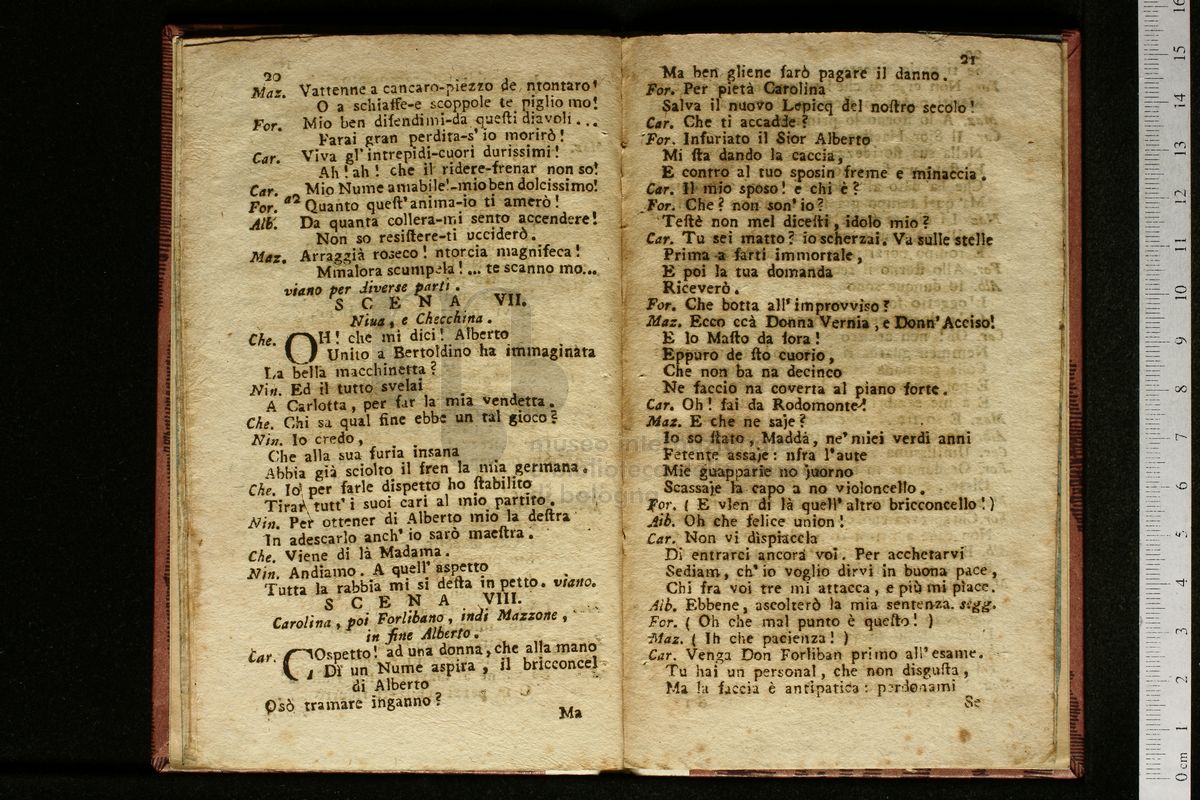 20
Maz. Vattenne a cancaro-piezzo de ntontaro!
O a schiaffe-e scoppole te piglio mo!
For. Mio ben difendimi-da questi diavoli...
Farai gran perdita-s' io morirò!
Car. Viva gl' intrepidi-cuori durissimi!
Ah! ah! che il ridere-frenar non so!
Car. Mio Nume amabile!-mio ben dolcissimo!
For. a2 Quanto quest' anima-io ti amerò!
Alb. Da quanta collera-mi sento accendere!
Non so resistere-ti ucciderò.
Maz. Arraggià roseco! ntorcia magnifeca!
Mmalora scumpela!... te scanno mo...
viano per diverse parti.
SCENA VII.
Nina, e Checchina.
Che. OH! che mi dici! Alberto
Unito a Bertoldino ha immaginata
La bella macchinetta?
Nin. Ed il tutto svelai
A Carlotta, per far la mia vendetta.
Che. Chi sa qual fine ebbe un tal gioco?
Nin. Io credo,
Che alla sua furia insana
Abbia già sciolto il fren la mia germana.
Che. Io per farle dispetto ho stabilito
Tirar tutt' i suoi cari al mio partito.
Nin. Per ottener di Alberto mio la destra
In adescarlo anch' io sarò maestra.
Che. Viene di là Madama.
Nin. Andiamo. A quell' aspetto
Tutta la rabbia mi si desta in petto. viano.
SCENA VIII.
Carolina, poi Forlibano, indi Mazzone,
in fine Alberto.
Car. COspetto! ad una donna, che alla mano
Di un Nume aspira, il bricconcel
di Alberto
Osò tramare inganno?
Ma
21
Ma ben gliene farò pagare il danno.
For. Per pietà Carolina
Salva il nuovo Lepicq del nostro secolo!
Car. Che ti accadde?
For. Infuriato il Sior Alberto
Mi sta dando la caccia,
E contro al tuo sposin freme e minaccia.
Car. Il mio sposo! e chi è?
For. Che? non son' io?
Testè non mel dicesti, idolo mio?
Car. Tu sei matto? io scherzai. Va sulle stelle
Prima a farti immortale,
E poi la tua domanda
Riceverò.
For. Che botta all' improvviso?
Maz. Ecco ccà Donna Vernia, e Donn' Acciso!
E lo Masto da fora!
Eppuro de sto cuorio,
Che non ba na decinco
Ne faccio na coverta al piano forte.
Car. Oh! fai da Rodomonte!
Maz. E che ne saje?
Io so stato, Maddà, ne' miei verdi anni
Fetente assaje: nfra l'aute
Mie guapparie no juorno
Scassaje la capo a no violoncello.
For. ( E vien di là quell' altro bricconcello!)
Alb. Oh che felice union!
Car. Non vi dispiaccia
Di entrarci ancora voi. Per acchetarvi
Sediam, ch' io voglio dirvi in buona pace,
Chi fra voi tre mi attacca, e più mi piace.
Alb. Ebbene, ascolterò la mia sentenza. segg.
For. ( Oh che mal punto è questo! )
Maz. ( Ih che pacienza! )
Car. Venga Don Forliban primo all' esame.
Tu hai un personal, che non disgusta,
Ma la faccia è antipatica: perdonami
Se